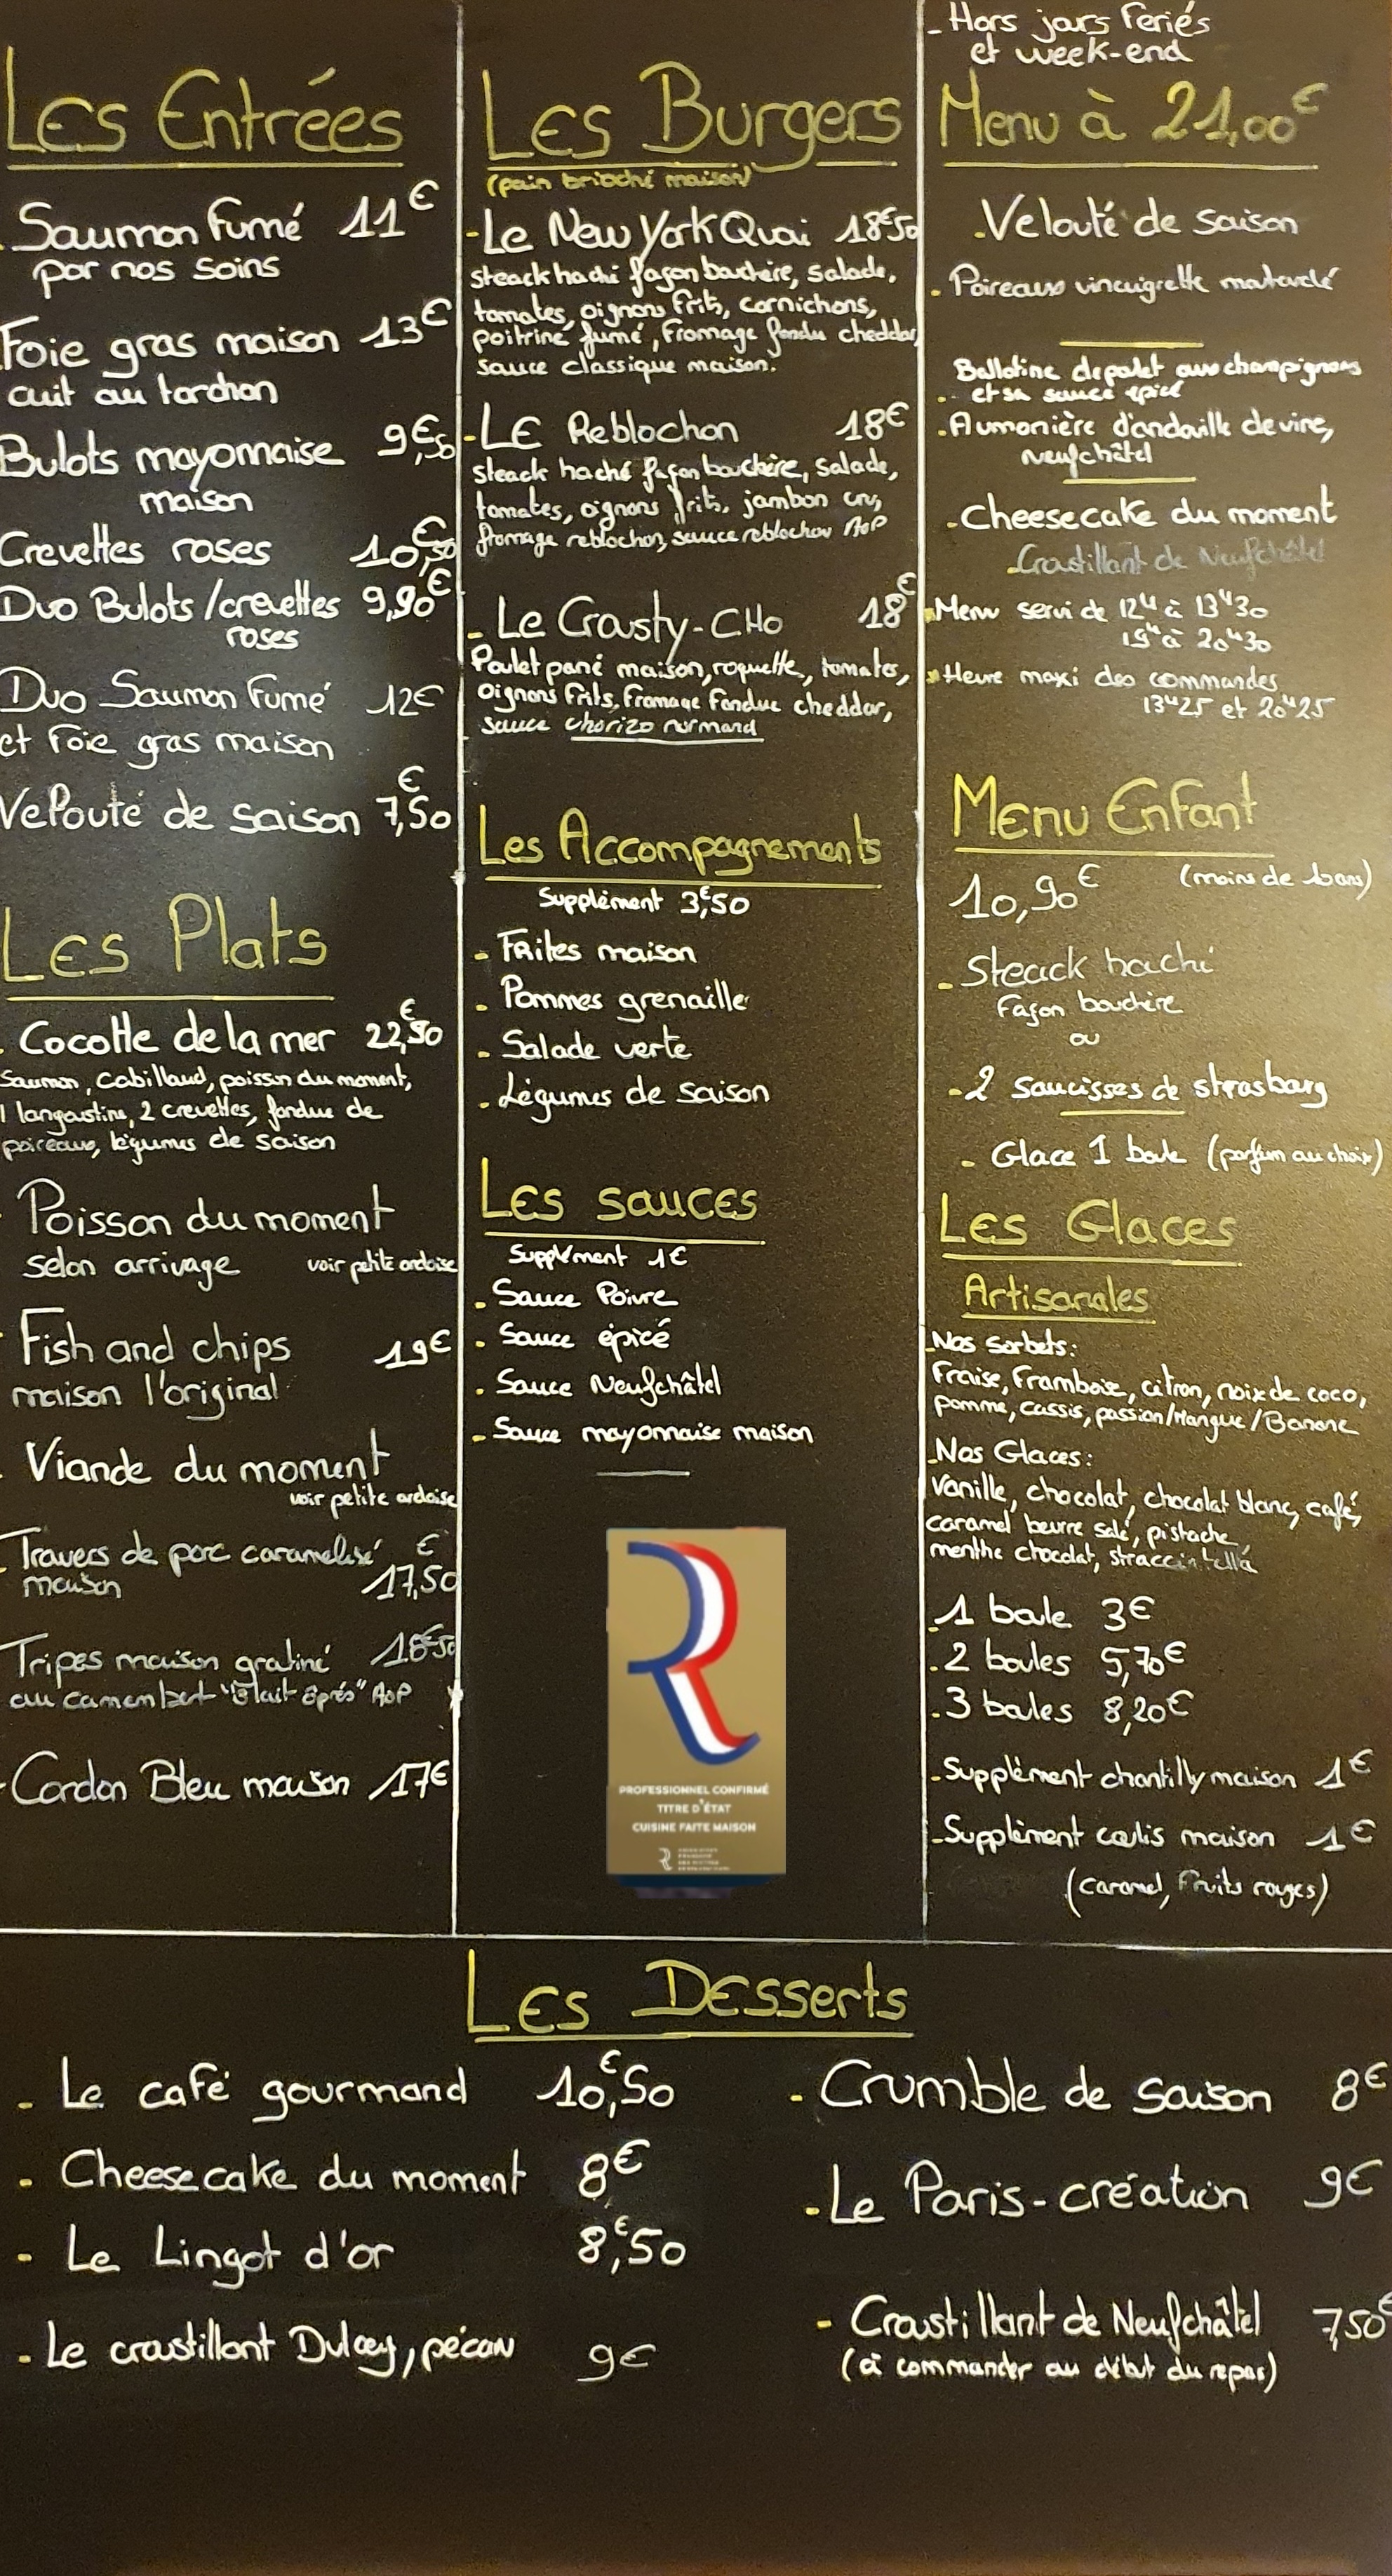 Les Entrées
Saumon Fumé 11€
par nos soins
Foie gras maison 13€
cuit au torchon
Bulots mayonnaise 9€,50
maison
Crevettes roses 10€,50
Duo Bulots/crevettes 9,90€
roses
Duo Saumon Fumé 12€
et Foie gras maison
Velouté de saison 7,50€
Les Plats
Cocotte de la mer 22,90€
Saumon, Cabillaud, poisson du moment,
1 langoustine, 2 crevettes, fondue de
poireaux, légumes de saison
Poisson du moment
selon arrivage voir petite ardoise
Fish and chips 19€
maison l'original
Viande du moment
voir petite ardoise
Travers de porc caramelisé €
maison 17,50
Tripes maison gratiné 18€50
au camembert AOP
Cordon Bleu maison 17€
Les Burgers
(pain brioché maison)
- Le New York Quai 18€50
steack haché façon bouchère, salade,
tomates, oignons frits, cornichons,
poitrine fumé, fromage fondu cheddar,
sauce classique maison.
- LE Reblochon 18€
steack haché façon bouchère, salade,
tomates, oignons frits, jambon cru,
fromage reblochon, sauce reblochon AOP
- Le Crousty-CHO 18€
Poulet pané maison, roquette, tomates,
oignons frits, fromage fondue cheddar,
sauce chorizo normand
Les Accompagnements
Supplément 3€,50
- Frites maison
- Pommes grenaille
- Salade verte
- Légumes de saison
Les sauces
Supplément 1€
- Sauce Poivre
- Sauce épicé
- Sauce Neufchâtel
- Sauce mayonnaise maison
PROFESSIONNEL CONFIRMÉ
TITRE D'ÉTAT
CUISINE FAITE MAISON
- Hors jours Feriés
et week-end
Menu à 21,00€
- Velouté de saison
- Poireaux vinaigrette
Ballotine de poulet aux champignons
- et sa sauce épicé
- Aumonière d'andouille de vire,
neufchâtel
- Cheesecake du moment
- Croustillant de Neufchâtel
Menu servi de 12H à 13H30
19H à 20H30
Heure maxi des commandes
13H25 et 20H25
Menu Enfant
10,90€ (moins de 10 ans)
- Steack haché
Façon bouchère
ou
- 2 saucisses de strasbourg
- Glace 1 boule (parfum au choix)
Les Glaces
Artisanales
Nos sorbets:
Fraise, Framboise, citron, noix de coco,
pomme, cassis, passion/Mangue/Banane
Nos Glaces:
Vanille, chocolat, chocolat blanc, café,
caramel beurre salé, pistache,
menthe chocolat, straccintella
- 1 boule 3€
- 2 boules 5,70€
- 3 boules 8,20€
- Supplément chantilly maison 1€
- Supplément coulis maison 1€
(caramel, Fruits rouges)
Les Desserts
- Le café gourmand 10€,50
- Cheesecake du moment 8€
- Le Lingot d'or 8€,50
- Le croustillant Dulcey, pécan 9€
- Crumble de saison 8€
- Le Paris-création 9€
- Croustillant de Neufchâtel 7,50€
(à commander au début du repas)